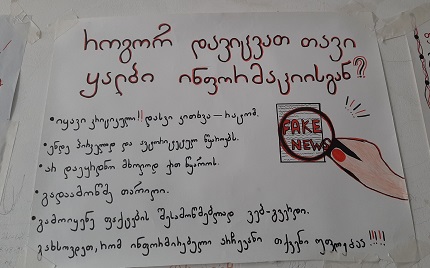 როგორ დავიცვათ თავი
ყალბი ინფორმაციისგან?
• იყავი კრიტიკული!! დასვი კითხვა — რატომ.
• ენდე პირველად და ავტორიტეტულ წყაროებს.
• არ დაეყრდნო მხოლოდ ერთ წყაროს.
• გადაამოწმე თარიღი.
• გამოიყენე ფაქტების შესამოწმებლად ვებ-გვერდი.
გახსოვდეთ, რომ ინფორმირებული არჩევანი თქვენი უფლებაა!!!!!
FAKE
NEWS